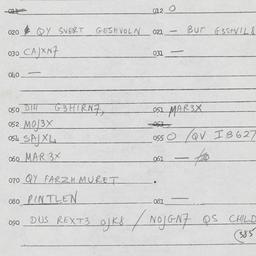 011 012 O
020 QY SVERT GESHVOLN 021 - BUF G3SHVIL8
030 CAJXN7 031 —
040 —
050 DIH G3HIRN7, 051 MAR3X
052 MOJ3X 053
054 SAJXL 055 O /QV I8627
060 MAR3X 061 —
070 QY FARZHMURET .
080 PINTLEN 081 —
090 DUS REXT3 OJK8 / NOJGN7 QS CHILD
385